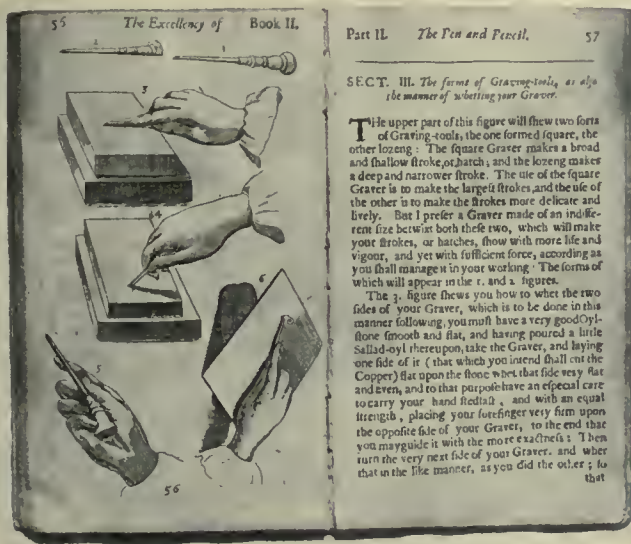 56 The Excellency of Book II.
1 2
3
4
6
5
56
Part II. The Pen and Pencil. 57
SECT. III. The forms of Graving-tools, as also
the manner of whetting your Graver.
THe upper part of this figure will shew two sorts
of Graving-tools; the one formed square, the
other lozeng: The square Graver makes a broad
and shallow stroke, or hatch; and the lozeng makes
a deep and narrower stroke. The use of the square
Graver is to make the largest strokes, and the use of
the other is to make the strokes more delicate and
lively. But I prefer a Graver made of an indiffe-
rent size betwixt both these two, which will make
your strokes, or hatches, show with more life and
vigour, and yet with sufficient force, according as
you shall manage it in your working: The forms of
which will appear in the 1. and 2. figures.
The 3. figure shews you how to whet the two
sides of your Graver, which is to be done in this
manner following, you must have a very good Oyl-
stone smooth and flat, and having poured a little
Sallad-oyl thereupon, take the Graver, and laying
one side of it (that which you intend shall cut the
Copper) flat upon the stone whet that side very flat
and even, and to that purpose have an especial care
to carry your hand stedfast, and with an equal
strength, placing your forefinger very firm upon
the opposite side of your Graver, to the end that
you may guide it with the more exactness: Then
turn the very next side of your Graver. and whet
that in the like manner, as you did the other; so
that